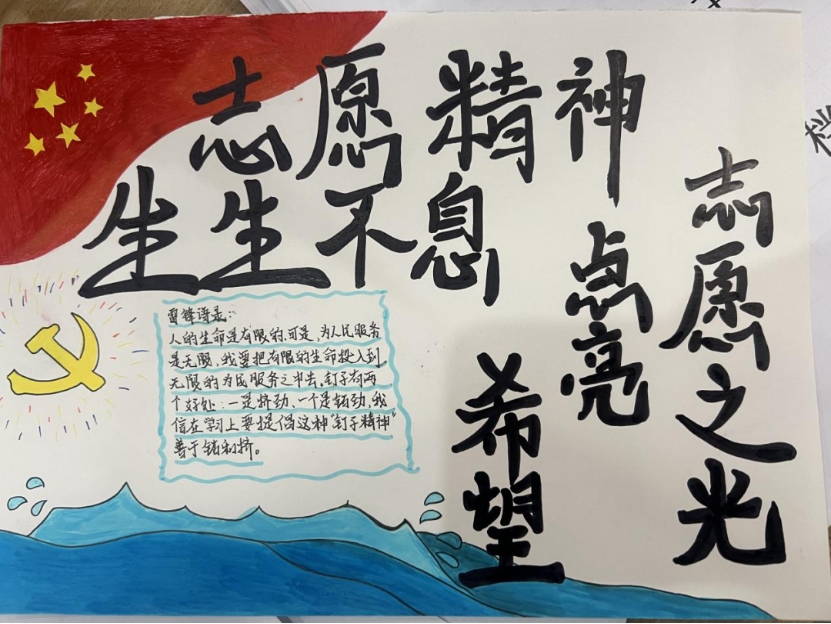 志愿精神
生生不息
志愿之光
点亮
希望
雷锋语录:
人的生命是有限的,可是,为人民服务
是无限,我要把有限的生命投入到
无限的为民服务之中去,钉子有两
个好处:一是挤劲、一个是钻劲,我
们在学习上要提倡这种"钉子精神"
善于钻和挤。